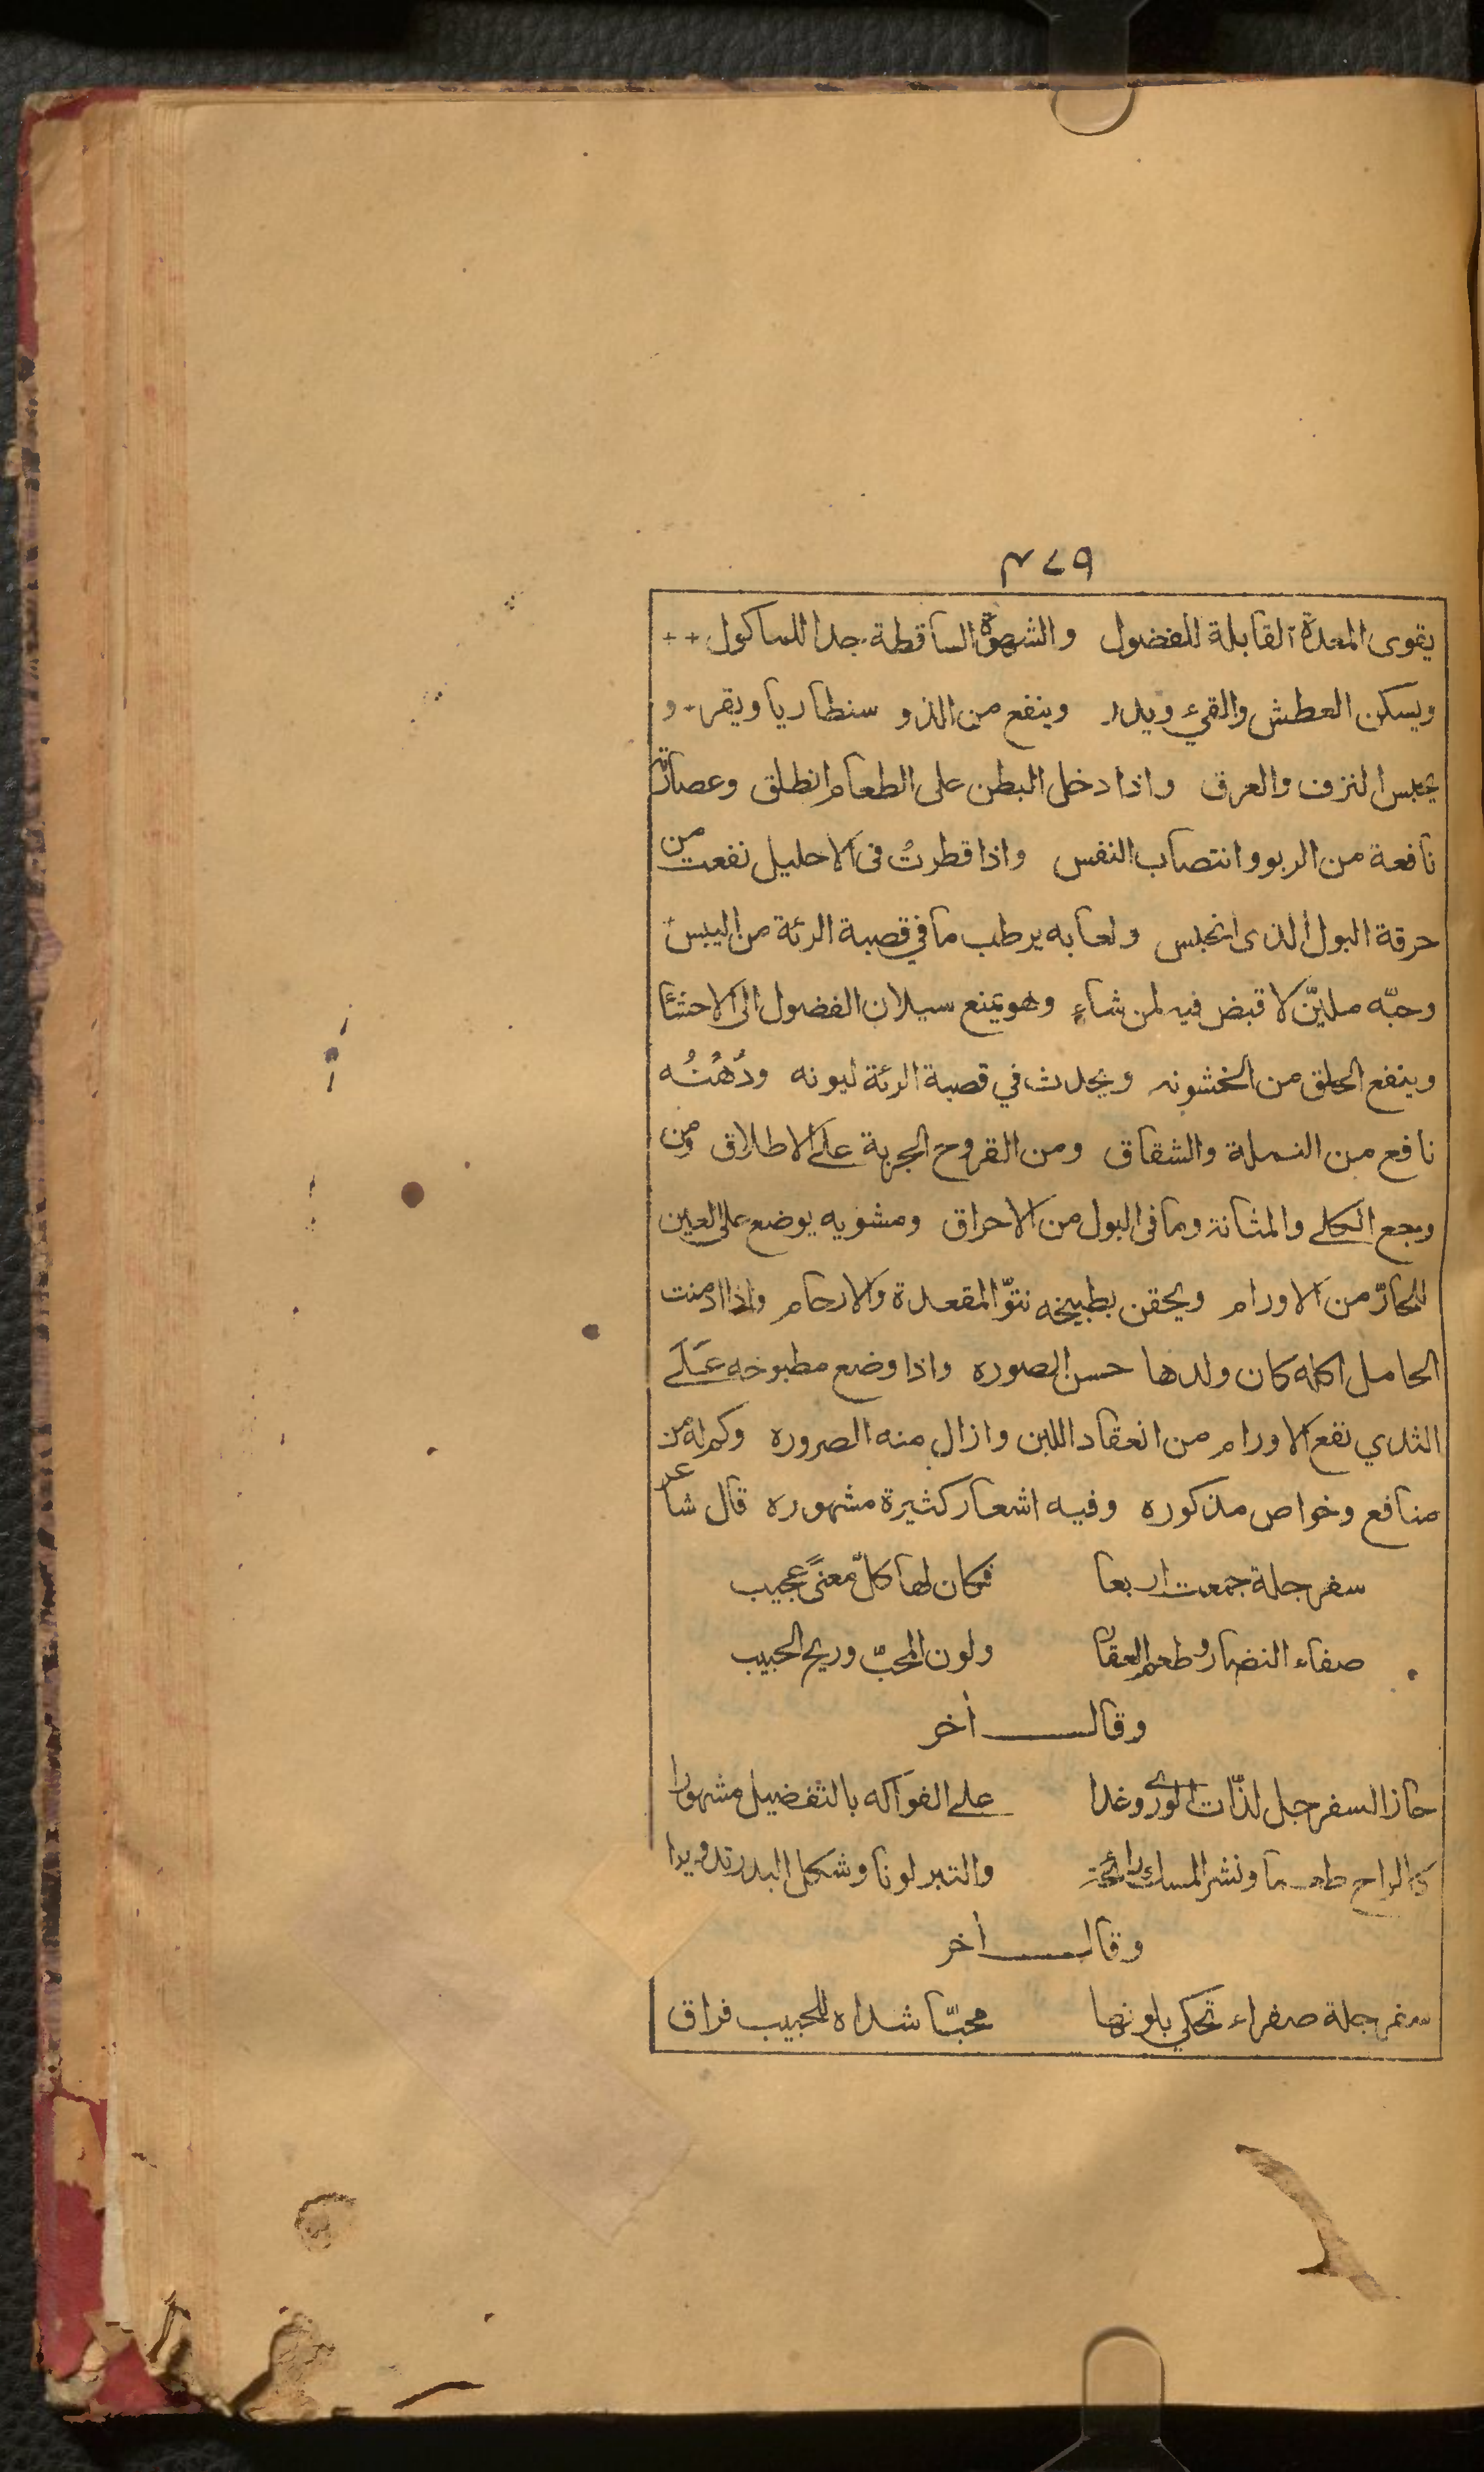 ٢٧٩
يقوى المعدة القابلة للفضول والشهوة الساقطة جدا للماكول ++
ويسكن العطش والقيء ويدر وينفع من الذو سنطاريا ويقر و
يحبس النزف والعرق واذا دخل البطن على الطعام انطلق وعصارته
نافعة من الربو وانتصاب النفس واذا قطرت فى الاحليل نفعت من
حرقة البول الذى انحبس ولعابه يرطب ما في قصبة الرئة من اليبس
وحبّه مليّن لا قبض فيه لمن شاء وهو يمنع سيلان الفضول الى الاحشا
وينفع الحلق من الخشونه ويحدث في قصبة الرئة ليونه ودُهنُه
نافع من النملة والشقاق ومن القروح الجربة على الاطلاق ومن
وجع الكلى والمثانة وما فى البول من الاحراق ومشويه يوضع على العين
للحارّ من الاورام ويحقن بطبيخه نتوّ المقعدة والارحام واذا ادمنت
الحامل اكله كان ولدها حسن الصوره واذا وضع مطبوخه على
الثدي نفع الاورام من انعقاد اللبن وازال منه الضروره وكم له من
منافع وخواص مذكوره وفيه اشعار كثيرة مشهوره قال شاعر
سفرجلة جمعت اربعا فكان لها كلّ معنىً عجيب
صفاء النضار وطعم العقار ولون المحبّ وريح الحبيب
وقال أخر
حاز السفرجل لذّات الورى وغدا على الفواكه بالتفضيل مشهورا
كالراح طعما ونشر المسك رائحة والتبر لونا وشكل البدر تدويرا
وقال أخر
سفرجلة صفراء تحكي بلونها محبّا شداه للحبيب فراق